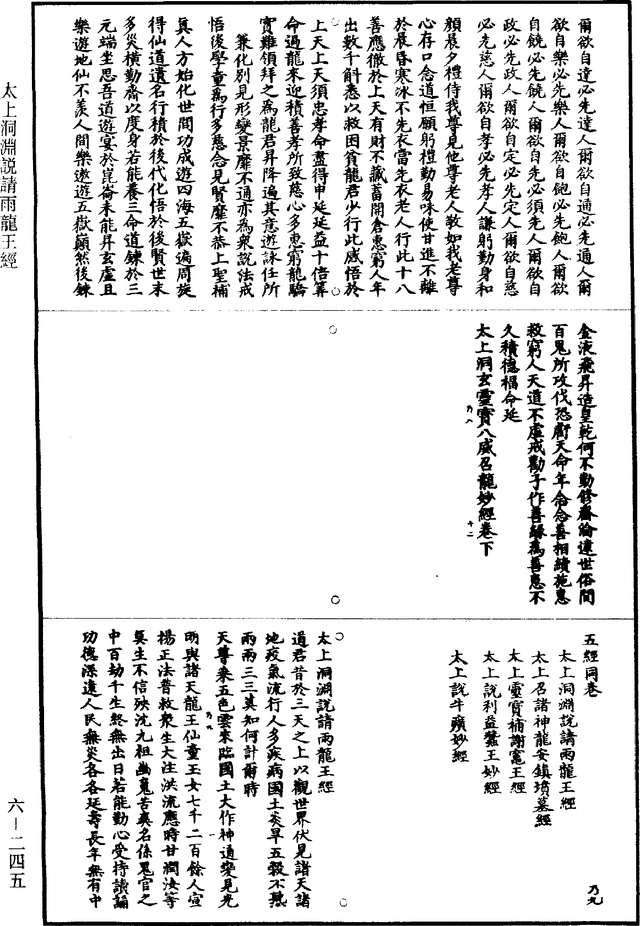 爾欲自達必先達人爾欲自通必先通人爾
欲自樂必先樂人爾欲自飽必先飽人爾欲
自饒必先饒人爾欲自先必須先人爾欲自
政必先政人爾欲自定必先定人爾欲自慈
必先慈人爾欲自孝必先孝人謙躬勤身和
顏晨夕禮侍我尊見他尊老人敬如我老尊
心存口念道恒願躬禮勤易味使甘進不離
於晨昏寒冰不先衣當先衣老人行此十八
善應徹於上天有財不藏蓄開倉惠窮人年
出數千斛悉以救困貧龍君少行此感悟於
上天上天須忠孝命盡得申延延益十倍筭
命過龍來迎積善孝所致慈心多惠窮龍驕
實難領拜之為龍君昇降適其意遊詠任所
兼化別見形變景靡不通亦為衆説法戒
悟後學童為行多慈念見賢靡不恭上聖補
真人方始化世間功成遊四海五嶽遍周旋
得仙道遺名行積於後代化悟於後賢世末
多災横勤齋以度身若能養三命道鍊於三
元端坐思吾道遊宴於崑崙未能昇玄虛且
樂遊地仙不羨人間樂遨遊五嶽巔然後鍊
金液飛昇造皇乾何不勤修齋淪違世俗間
百鬼所攻伐恐虧天命年念念善相續施惠
救窮人天道不虛戒勸子作善緣為善惠不
久積德福命延
太上洞玄靈寶八威召龍妙經卷下
乃八
十二
五經同卷
太上洞淵説請雨龍王經
太上召諸神龍安鎮墳墓經
太上靈寶補謝竈王經
太上説利益蠶王妙經
太上説牛癀妙經
乃九
太上洞淵説請雨龍王經
道君昔於三天之上以觀世界伏見諸天諸
地疫氣流行人多疾病國土炎旱五穀不熟
兩兩三三莫知何計爾時
天尊乘五色雲來臨國土大作神通變見光
明與諸天龍王仙童玉女七千二百餘人宣
揚正法普救衆生大注洪流應時甘潤汝等
莫生不信殃沈九祖幽魂苦爽名係鬼官之
中百劫千生終無出日若能勤心受持讀誦
功德深遠人民無災各各延壽長年無有中
太上洞淵説請雨龍王經
六—二四五